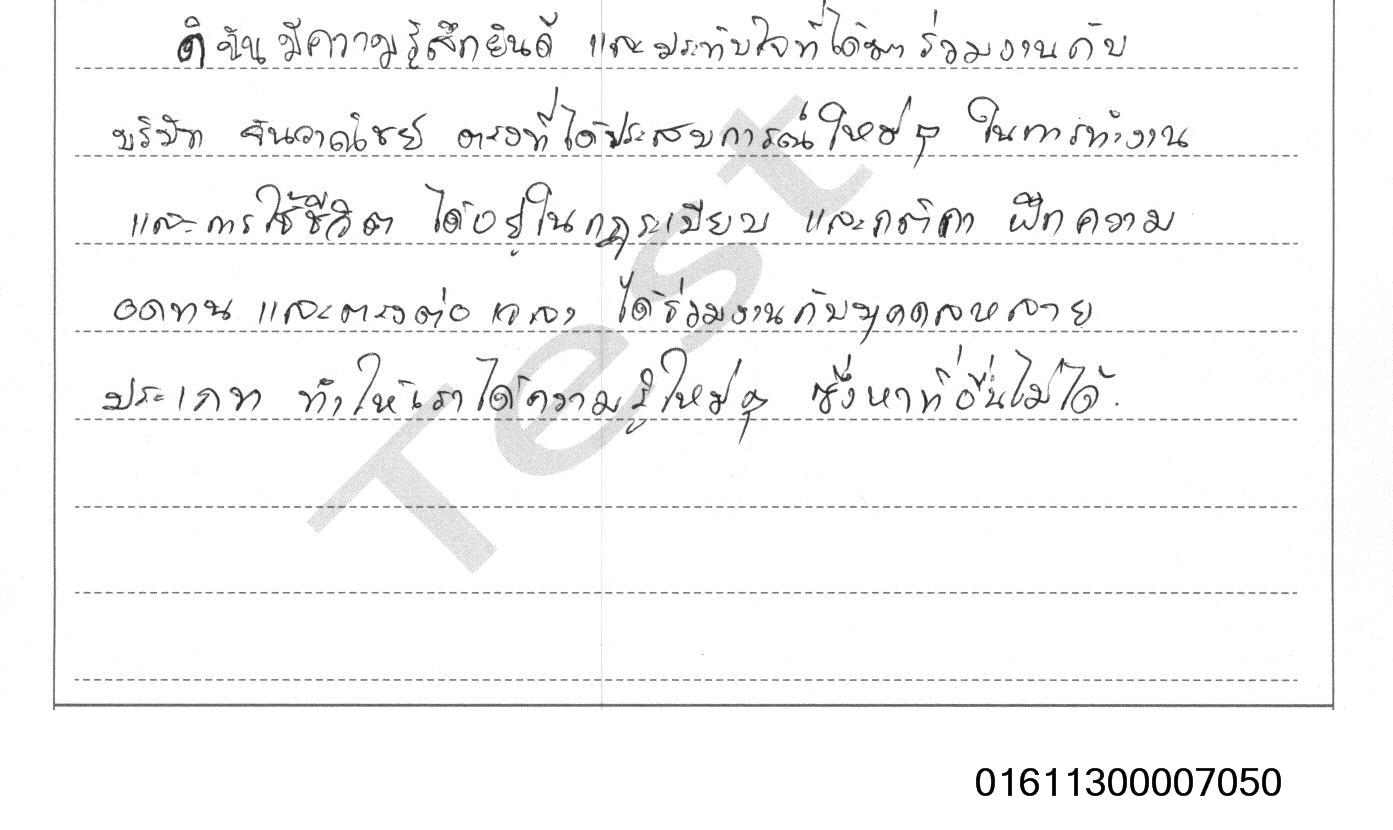 ดิฉันมีความรู้สึกยินดี และประทับใจที่ได้มาร่วมงานกับ
บริษัท จันวาณิชย์ ตรงที่ได้ประสบการณ์ใหม่ๆ ในการทำงาน
และการใช้ชีวิต ได้อยู่ในกฎระเบียบ และกติกา ฝึกความ
อดทน และตรงต่อเวลา ได้ร่วมงานกับบุคคลหลาย
ประเภท ทำให้เราได้ความรู้ใหม่ๆ ซึ่งหาที่อื่นไม่ได้.
Test
01611300007050